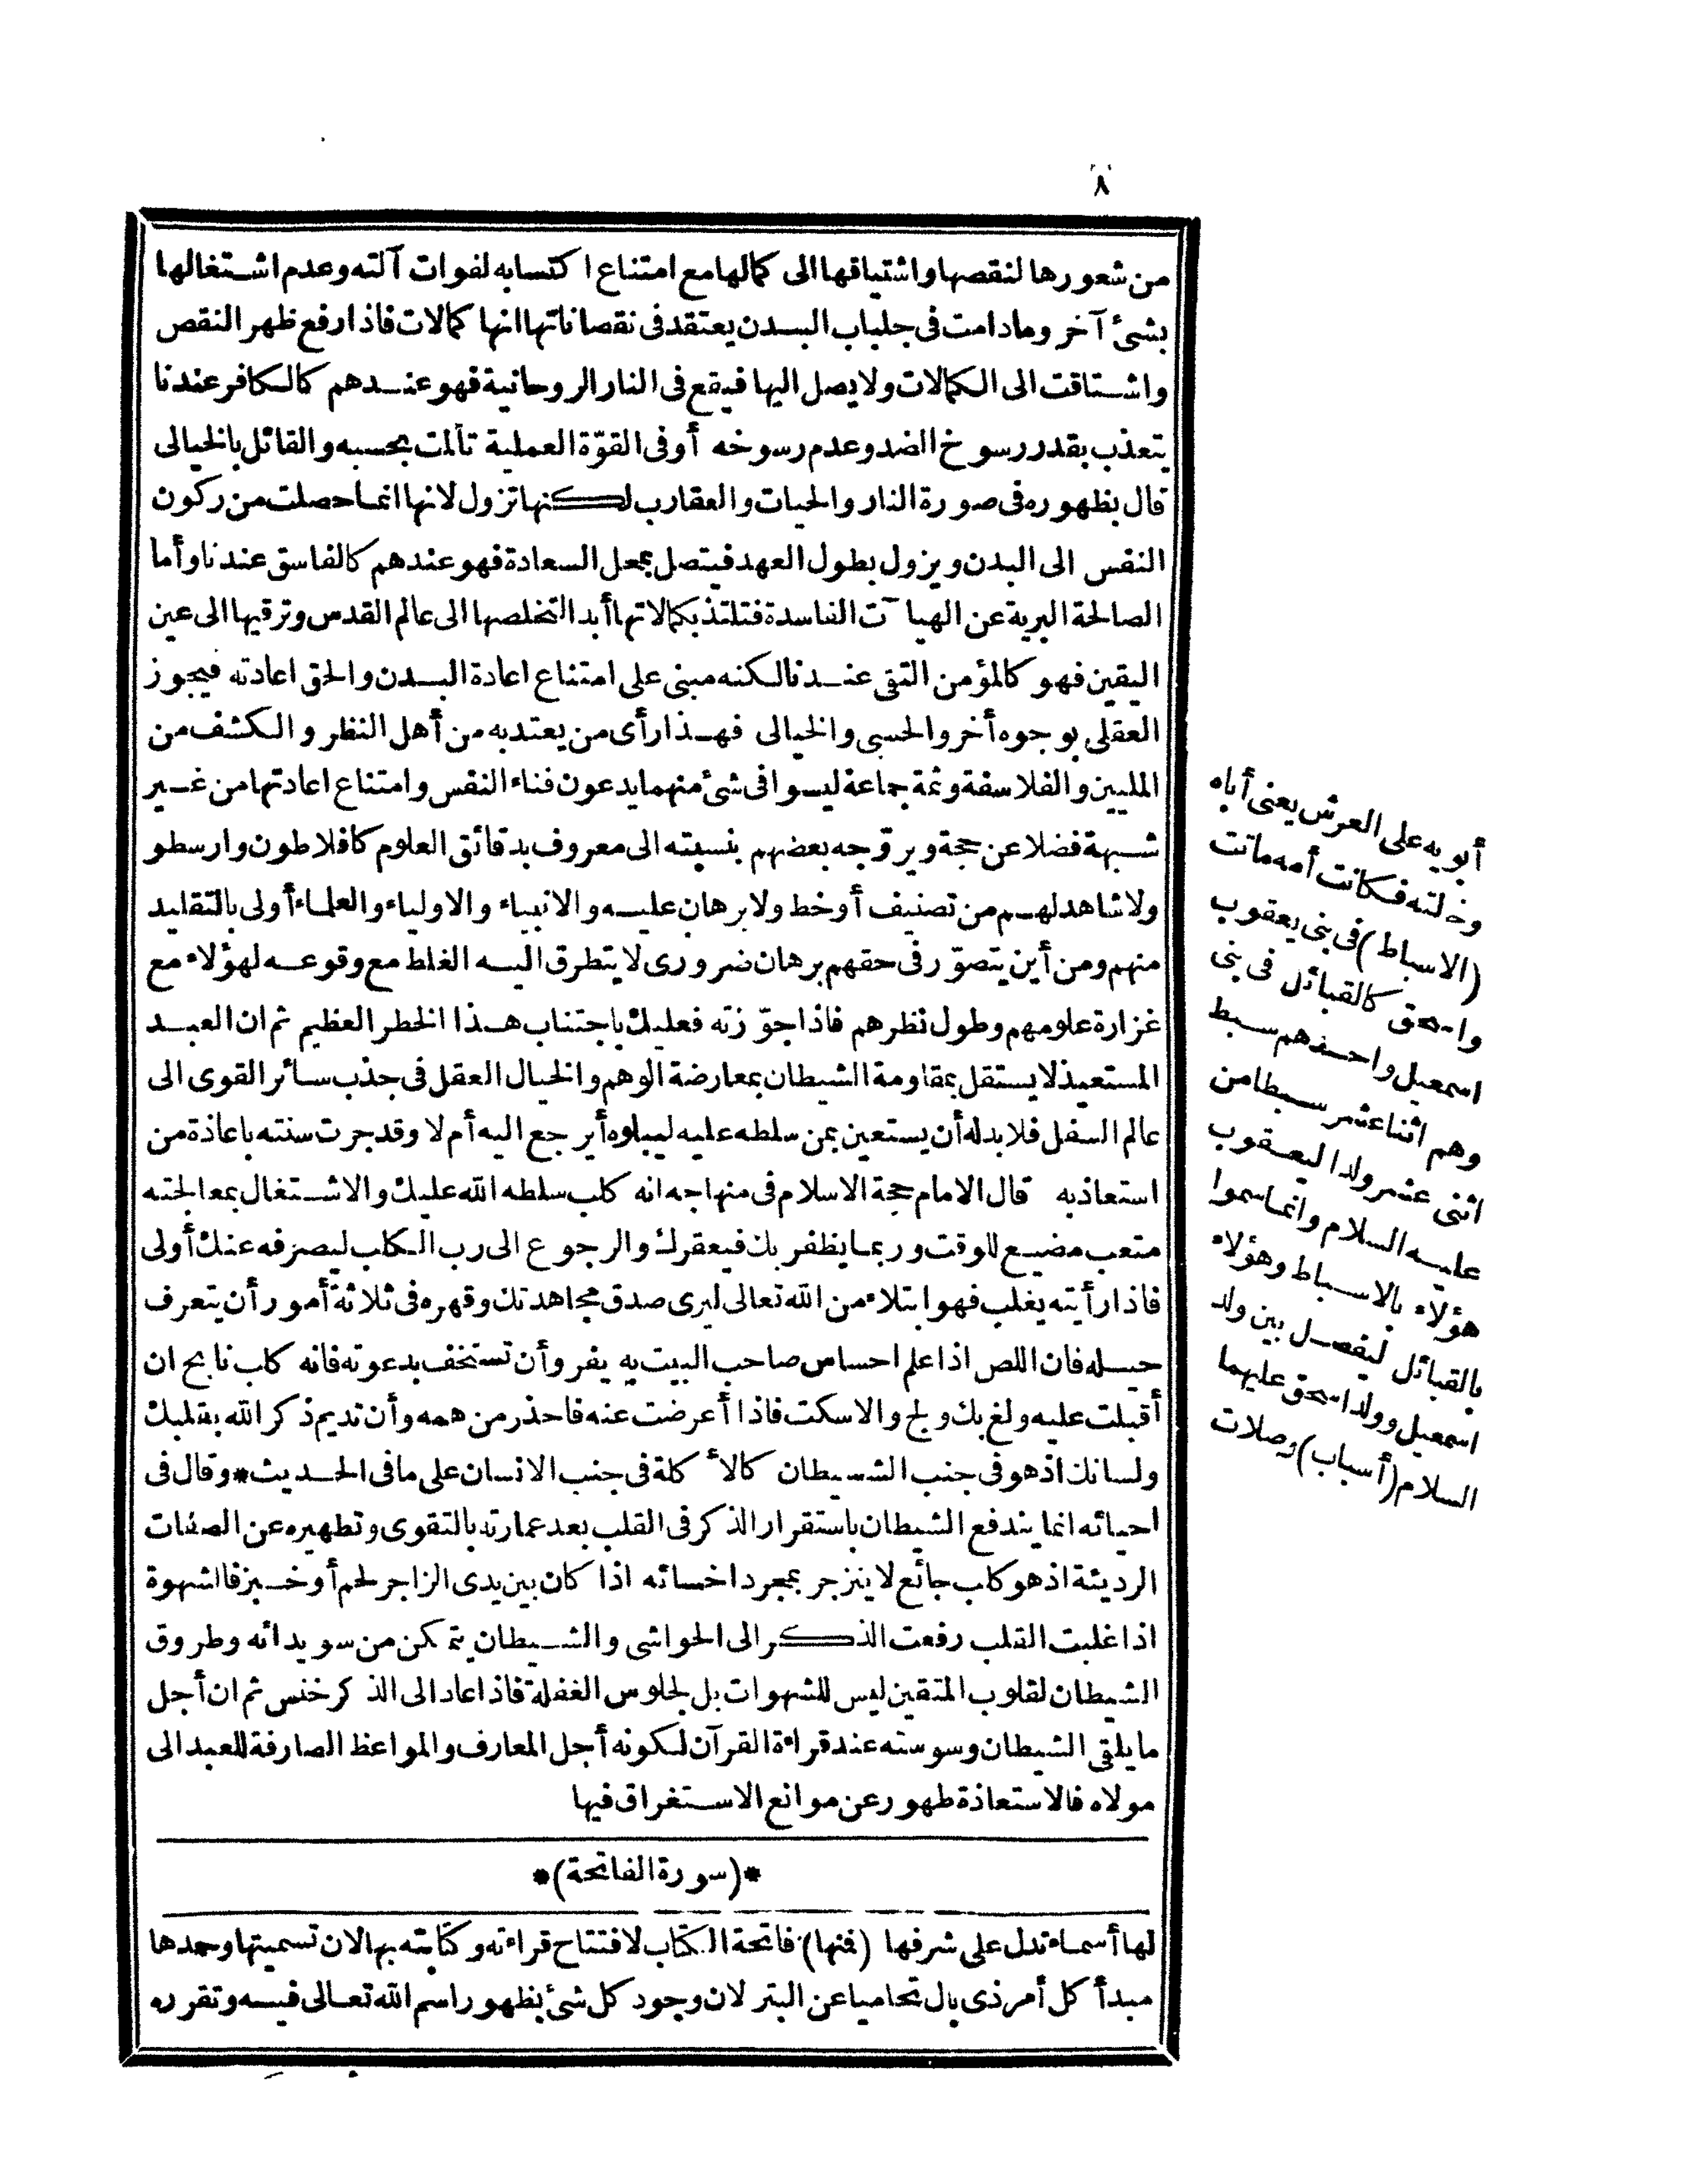 ٨
من شعورها لنقصها واشتياقها الى كمالها مع امتناع اكتسابه لفوات آلته وعدم اشتغالها
بشئ آخر ومادامت فى جلباب البدن يعتقد فى نقصاناتها انها كمالات فاذا رفع ظهر النقص
واشتاقت الى الكمالات ولا يصل اليها فيقع فى النار الروحانية فهو عندهم كالكافر عندنا
يتعذب بقدر رسوخ الضد وعدم رسوخه أو فى القوّة العملية تألمت بحسبه والقائل بالخيالى
قال بظهوره فى صورة النار والحيات والعقارب لكنها تزول لانها انما حصلت من ركون
النفس الى البدن ويزول بطول العهد فيتصل بمحل السعادة فهو عندهم كالفاسق عندنا وأما
الصالحة البرية عن الهيآت الفاسدة فتلتذ بكمالاتها أبدا لتخلصها الى عالم القدس وترقيها الى عين
اليقين فهو كالمؤمن التقى عندنا لكنه مبنى على امتناع اعادة البدن والحق اعادته فيجوز
العقلى بوجوه أخر والحسى والخيالى فهذا رأى من يعتد به من أهل النظر والكشف من
المليين والفلاسفة وثمة جماعة ليسوا فى شئ منهما يدعون فناء النفس وامتناع اعادتها من غير
شبهة فضلا عن حجة ويروّجه بعضهم بنسبته الى معروف بدقائق العلوم كافلاطون وارسطو
ولا شاهد لهم من تصنيف أو خط ولا برهان عليه والانبياء والاولياء والعلماء أولى بالتقليد
منهم ومن أين يتصوّر فى حقهم برهان ضرورى لا يتطرق اليه الغلط مع وقوعه لهؤلاء مع
غزارة علومهم وطول نظرهم فاذا جوّزته فعليك باجتناب هذا الخطر العظيم ثم ان العبد
المستعيذ لا يستقل بمقاومة الشيطان بمعارضة الوهم والخيال العقل فى جذب سائر القوى الى
عالم السفل فلا بد له أن يستعين بمن سلطه عليه ليبلوه أيرجع اليه أم لا وقد جرت سنته باعاذة من
استعاذ به قال الامام حجة الاسلام فى منهاجه انه كلب سلطه الله عليك والاشتغال بمعالجته
متعب مضيع للوقت وربما يظفر بك فيعقرك والرجوع الى رب الكلب ليصرفه عنك أولى
فاذا رأيته يغلب فهو ابتلاء من الله تعالى ليرى صدق مجاهدتك وقهره فى ثلاثة أمور أن يتعرف
حيله فان اللص اذا علم احساس صاحب البيت به يفر وأن تستخف بدعوته فانه كلب نابح ان
أقبلت عليه ولغ بك ولج والا سكت فاذا أعرضت عنه فاحذر من همه وأن تديم ذكر الله بقلبك
ولسانك اذ هو فى جنب الشيطان كالأكلة فى جنب الانسان على ما فى الحديث * وقال فى
احيائه انما يندفع الشيطان باستقرار الذكر فى القلب بعد عمارته بالتقوى وتطهيره عن الصفات
الرديئة اذ هو كلب جائع لا ينزجر بمجرد اخسائه اذا كان بين يدى الزاجر لحم أو خبز فالشهوة
اذا غلبت القلب رفعت الذكر الى الحواشى والشيطان يتمكن من سويدائه وطروق
الشيطان لقلوب المتقين ليس للشهوات بل لجلوس الغفلة فاذا عاد الى الذكر خنس ثم ان أجل
ما يلقى الشيطان وسوسته عند قراءة القرآن لكونه أجل المعارف والمواعظ الصارفة للعبد الى
مولاه فالاستعاذة طهور عن موانع الاستغراق فيها
*(سورة الفاتحة)*
لها أسماء تدل على شرفها (فمنها) فاتحة الكتاب لافتتاح قراءته وكتابته بها لان تسميتها وحمدها
مبدأ كل أمر ذى بال تحاميا عن البتر لان وجود كل شئ بظهور اسم الله تعالى فيه وتقرره
أبويه على العرش يعنى أباه
وخالته فكانت أمه ماتت
(الاسباط) فى بنى يعقوب
واسحق كالقبائل فى بنى
اسمعيل واحدهم سبط
وهم اثنا عشر سبطا من
اثنى عشر ولدا ليعقوب
عليه السلام وانما سموا
هؤلاء بالاسباط وهؤلاء
بالقبائل ليفصل بين ولد
اسمعيل وولد اسحق عليهما
السلام (أسباب) وصلات